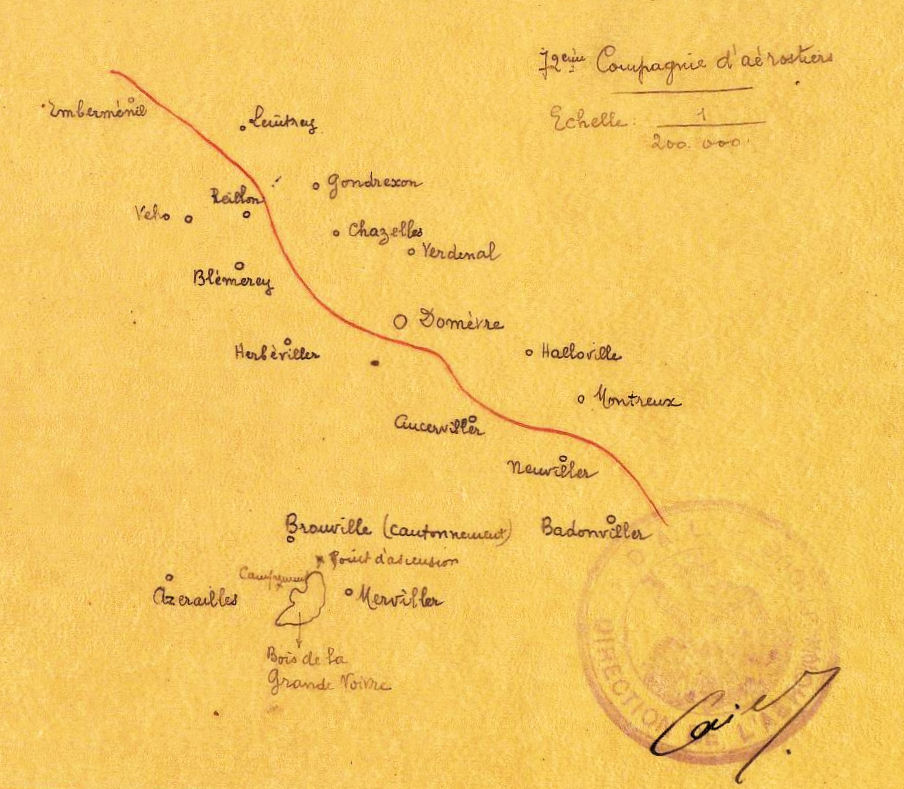 72ème Compagnie d'aérostiers
Echelle: 1
200.000
Emberménil
Leintrey
Gondrexon
Reillon
Veho
Chazelles
Verdenal
Blémerey
Domèvre
Herbéviller
Halloville
Montreux
Ancerviller
Neuviller
Brouville (cantonnement)
Badonviller
Point d'ascension
Campement
Azerailles
Merviller
Bois de la
Grande Voivre
DIRECTION DE L'AÉRO